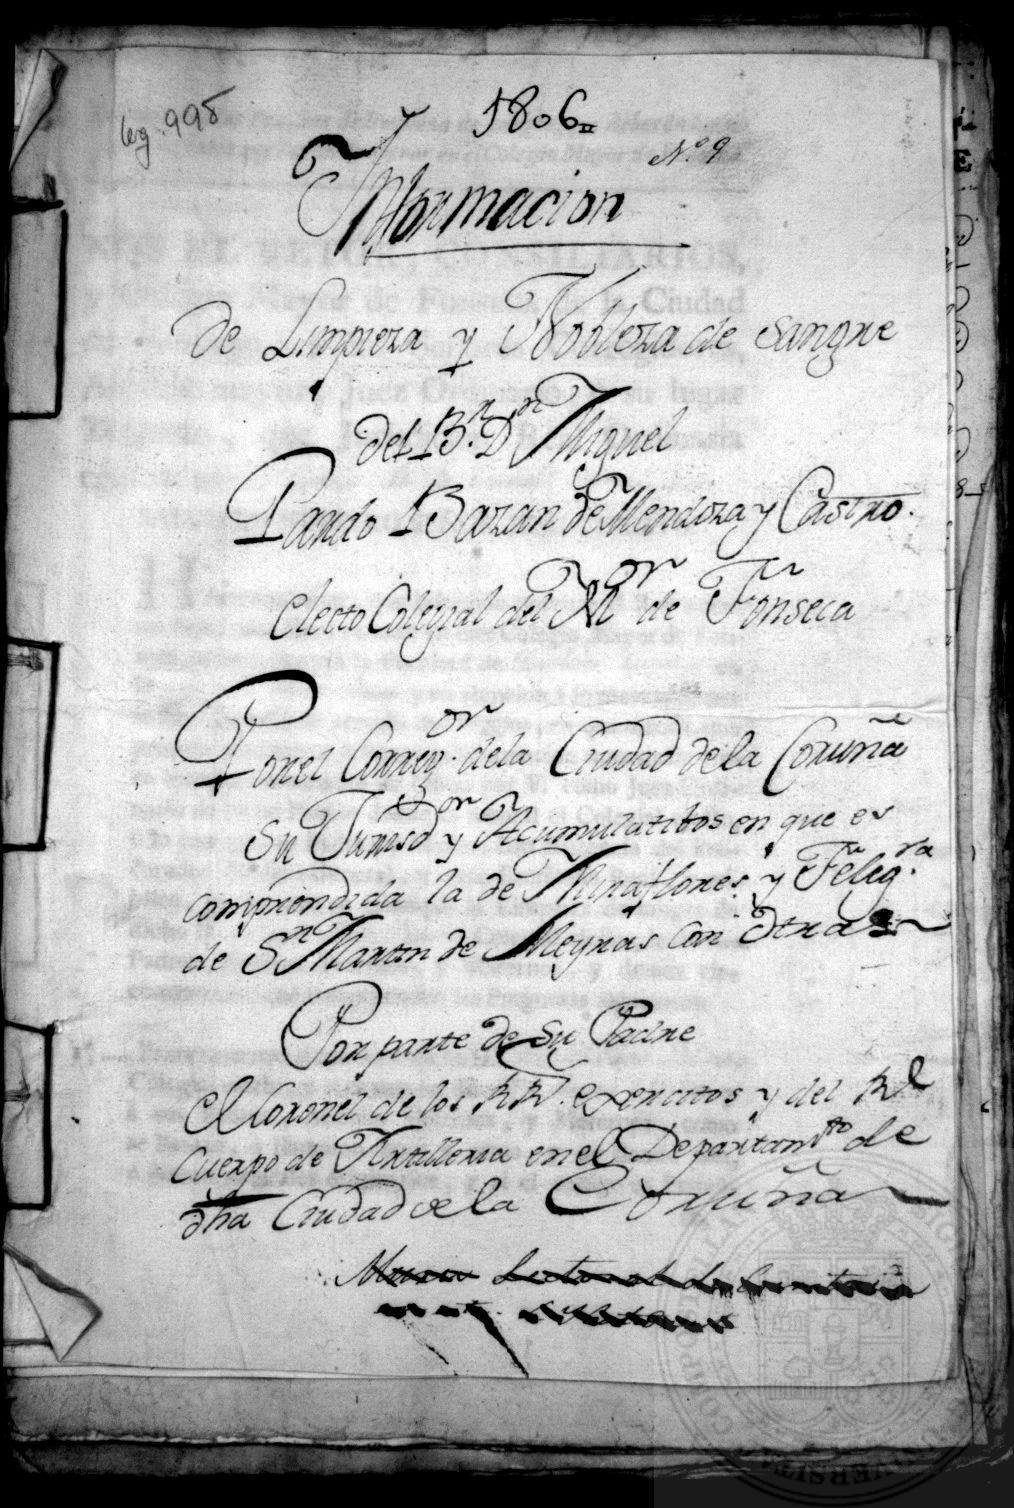 leg. 998
1806
Nº 9
Informacion
de Limpieza y Nobleza de Sangre
del Bʳ. Dⁿ Miguel
Pardo Bazan de Mendoza y Castro.
electo Colegial del Mᵒʳ de Fonseca
Por el Correg.ᵒʳ de la Ciudad de la Coruña
Su y Acumulatibos en que es
comprendida la de Miraflores, y Felig.ʳᵃ
de Sⁿ Martin de Meyras Con otras
Por parte de Su Padre
el Coronel de los RR.ˢ exercitos y del Rˡ
Cuerpo de Artilleria en el Departamᵗᵒ de
dha Ciudad de la Coruña